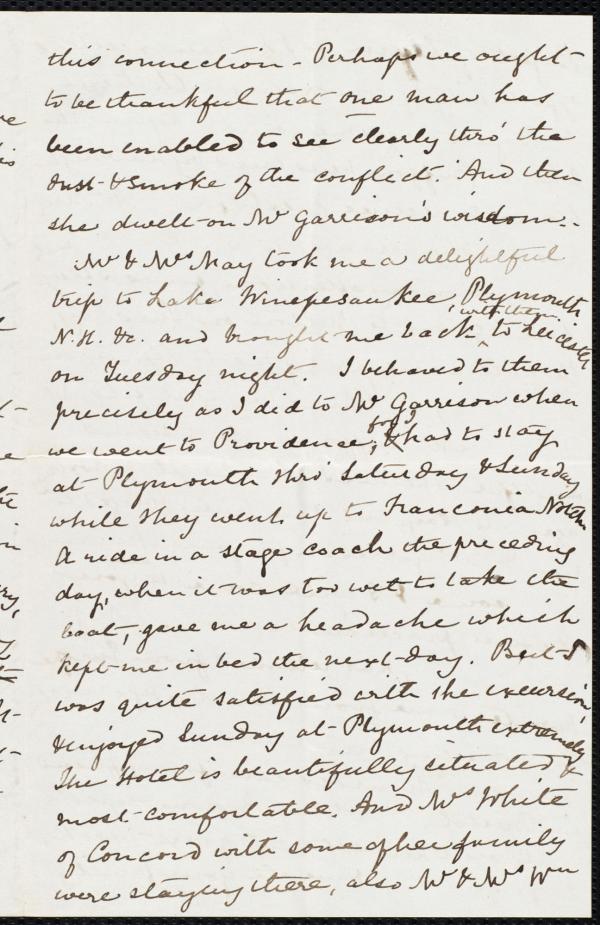 this connection - Perhaps we ought
to be thankful that one man has
been enabled to see clearly thro' the
dust & smoke of the conflict." And then
she dwelt on Mr Garrison's wisdom..
Mr & Mrs May took me a delightful
trip to Lake Winepesaukee, Plymouth
N.H. &c. and brought me back with them to Leicester
on Tuesday night. I behaved to them
precisely as I did to Mr Garrison when
we went to Providence; for I had to stay
at Plymouth thro' Saturday & Sunday
while they went up to Franconia Notch
A ride in a stage coach the preceding
day, when it was too wet to take the
boat, gave me a headache which
kept me in bed the next day. But I
was quite satisfied with the excursion,
& enjoyed Sunday at Plymouth extremely
The Hotel is beautifully situated &
most comfortable. And Mrs White
of Concord with some of her family
were staying there, also Mr & Mrs Wm